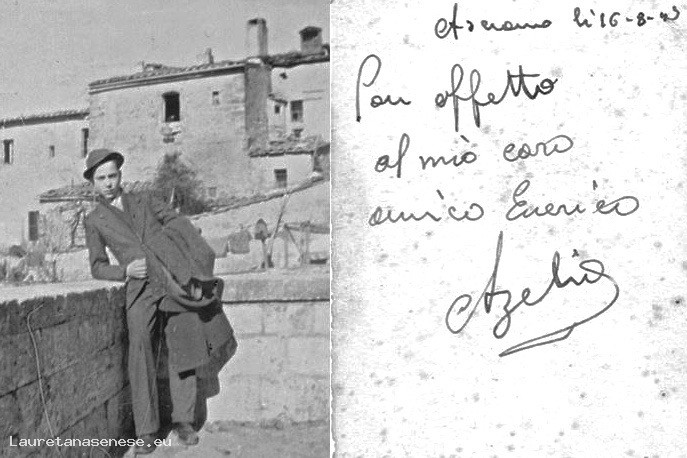 Asciano li 16-8-43
Con affetto
al mio caro
amico Enrico
Azelio
Lauretanasenese.eu